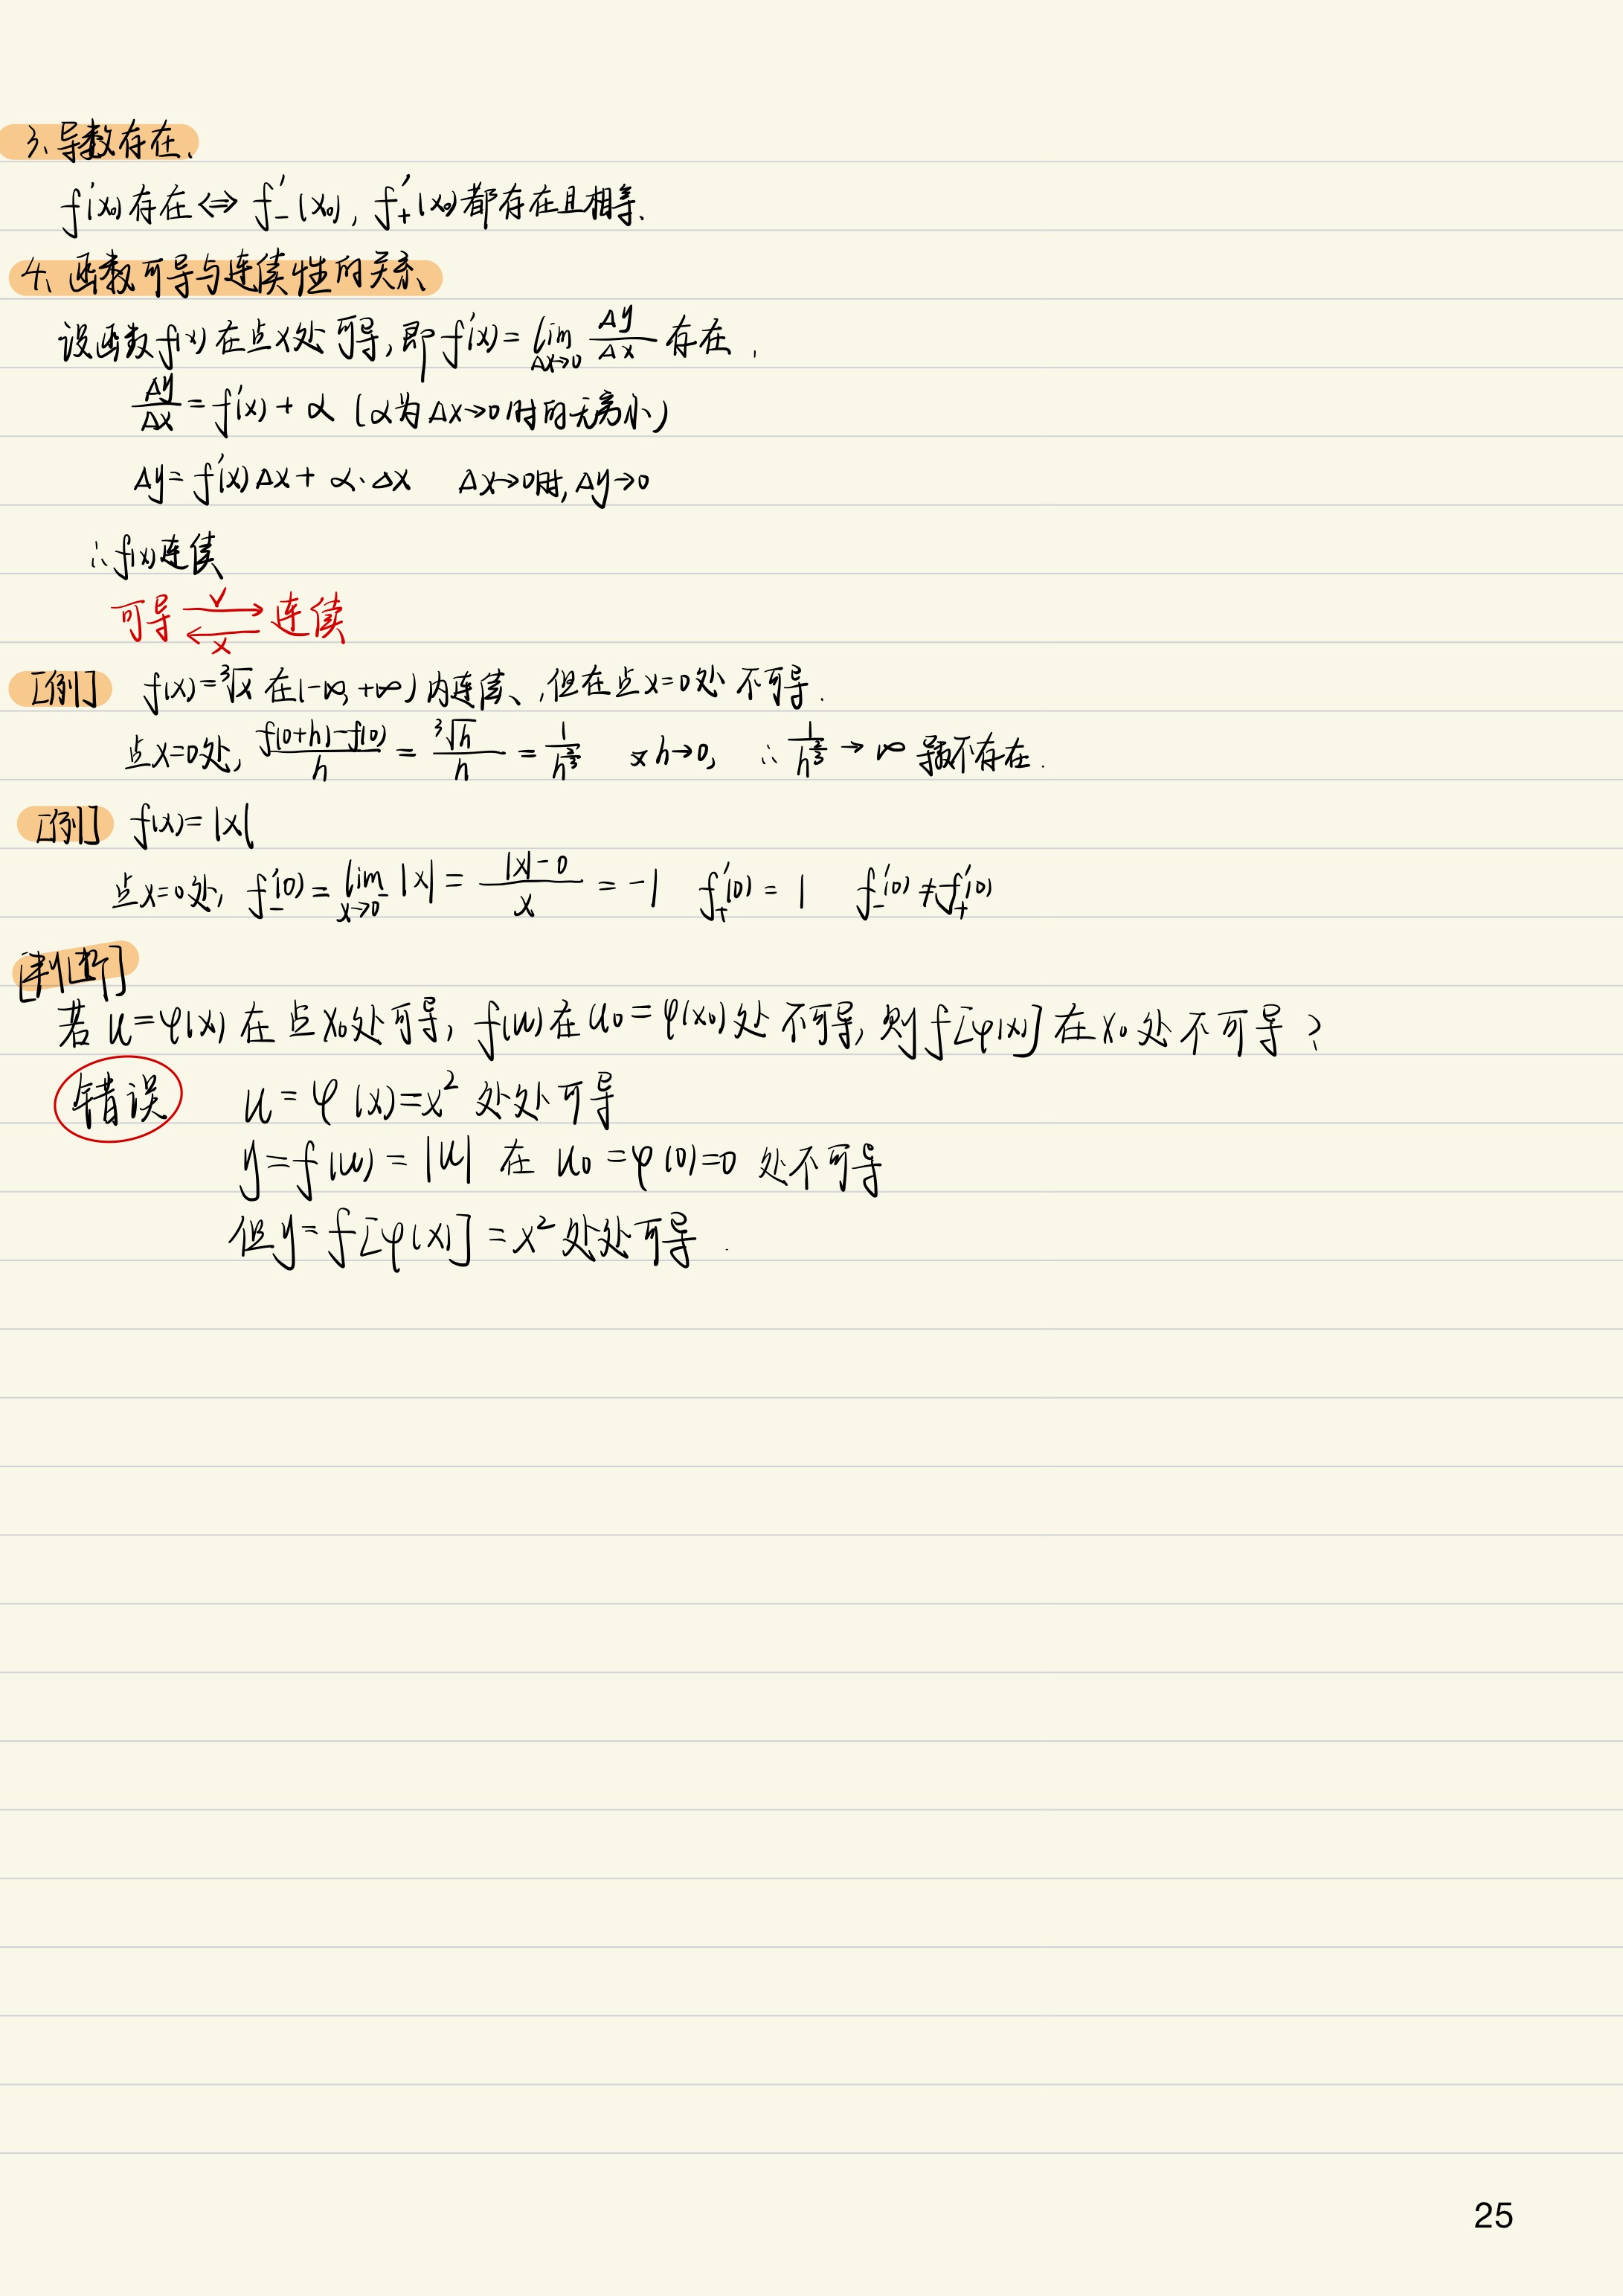 3、导数存在.
f'(x₀)存在⇔f₋'(x₀), f₊'(x₀)都存在且相等、
4、函数可导与连续性的关系、
设函数f(x)在点x处可导,即f'(x)=lim_{Δx→0} Δy/Δx 存在,
Δy/Δx=f'(x)+α (α为Δx→0时的无穷小)
Δy=f'(x)Δx+α·Δx Δx→0时,Δy→0
∴f(x)连续
可导 ⇄ 连续 (→ ✓, ← ×)
[例] f(x)=³√x 在(-∞,+∞)内连续、,但在点x=0处 不可导.
点x=0处, (f(0+h)-f(0))/h = ³√h/h = 1/h^{2/3} 又h→0, ∴ 1/h^{2/3} → ∞ 导数不存在.
[例] f(x)=|x|
点x=0处, f₋'(0)=lim_{x→0⁻}|x| = (|x|-0)/x = -1 f₊'(0) = 1 f₋'(0)≠f₊'(0)
[判断]
若 u=φ(x) 在点x₀处可导, f(u)在u₀=φ(x₀)处 不可导, 则f[φ(x)]在x₀处不可导?
错误 u=φ(x)=x² 处处可导
y=f(u)=|u| 在 u₀=φ(0)=0 处不可导
但y=f[φ(x)]=x² 处处可导.
25